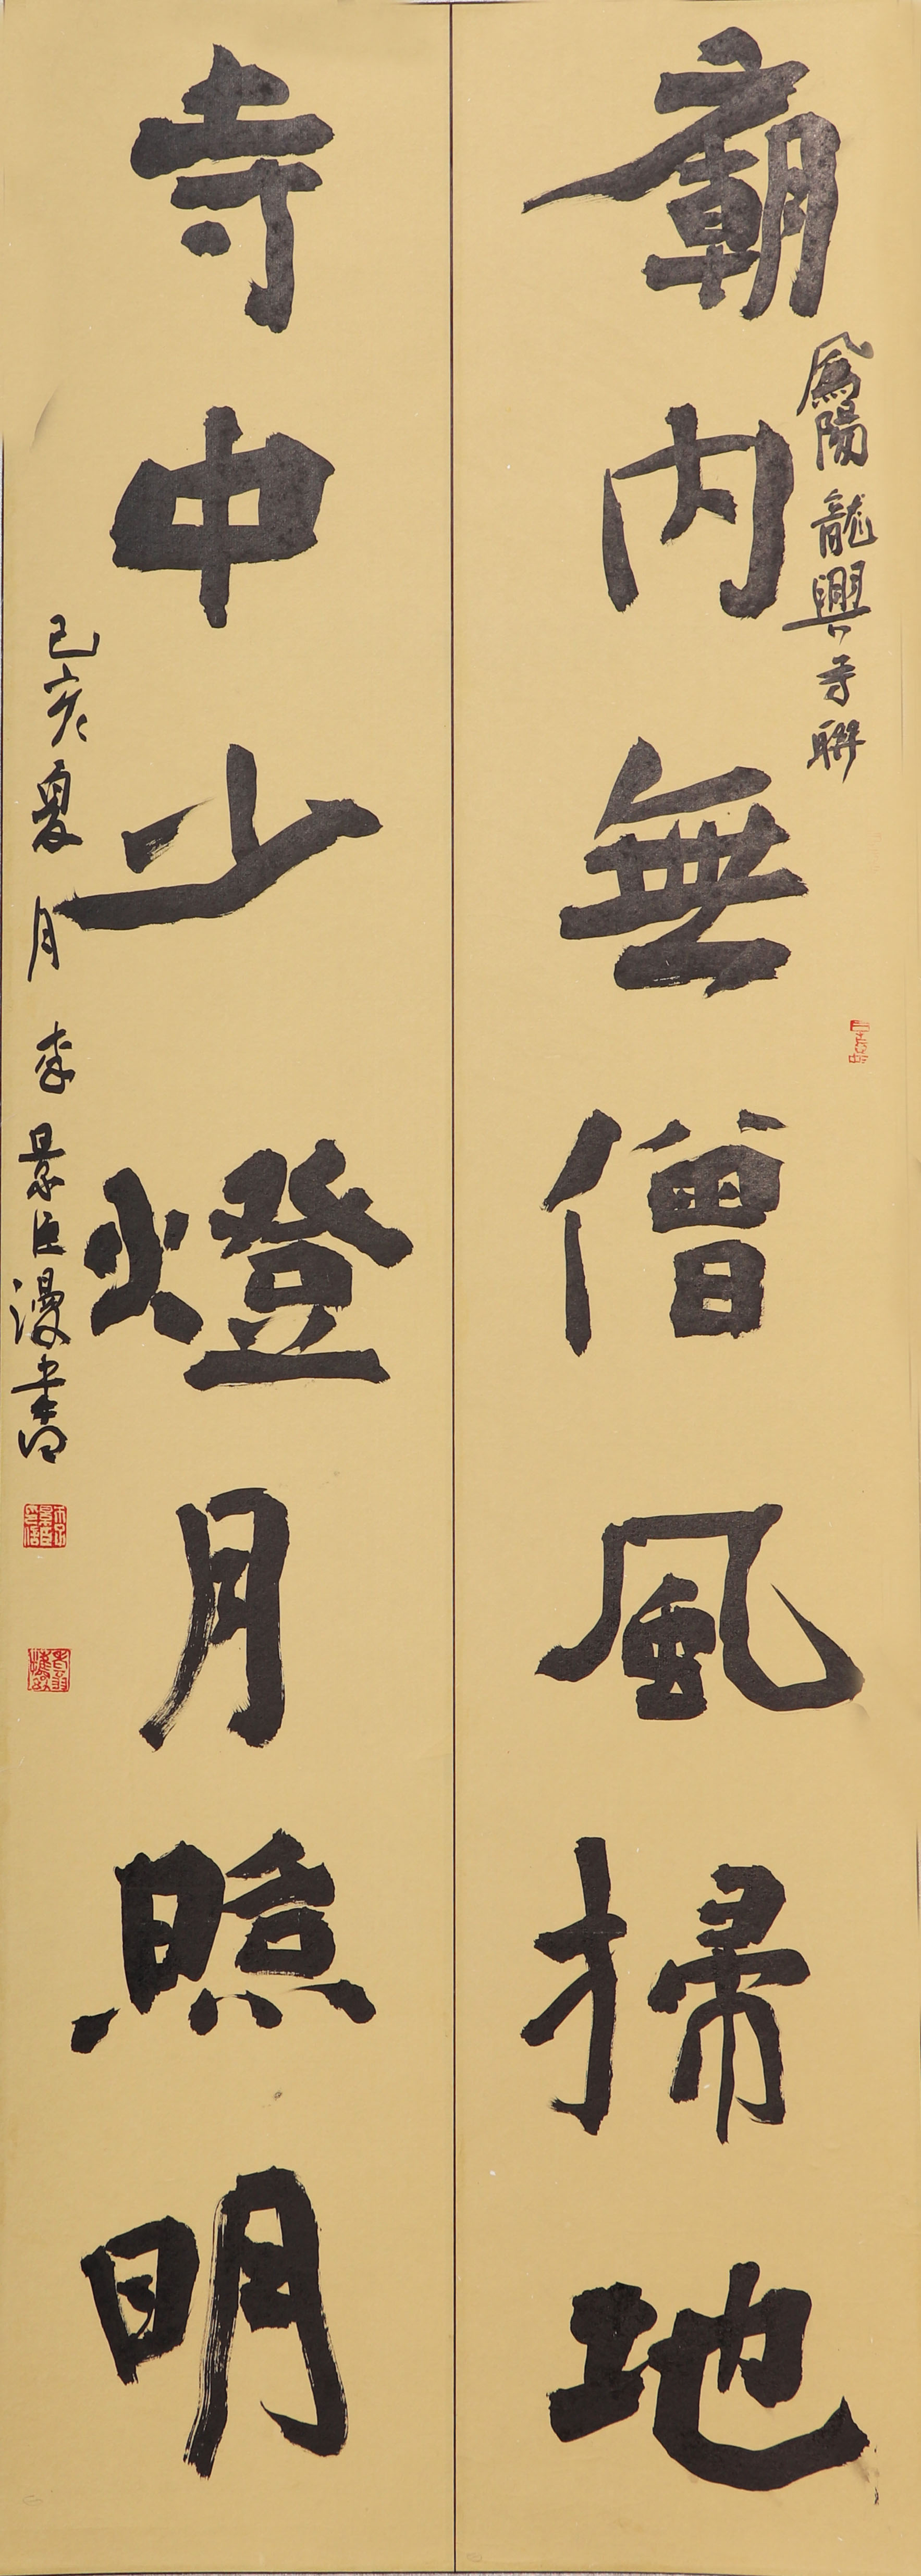 廟内無僧風掃地
鳳陽龍興寺聯
寺中少燈月照明
己亥夏月李景臣漫書